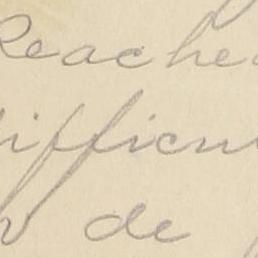 Reache
difficu
de